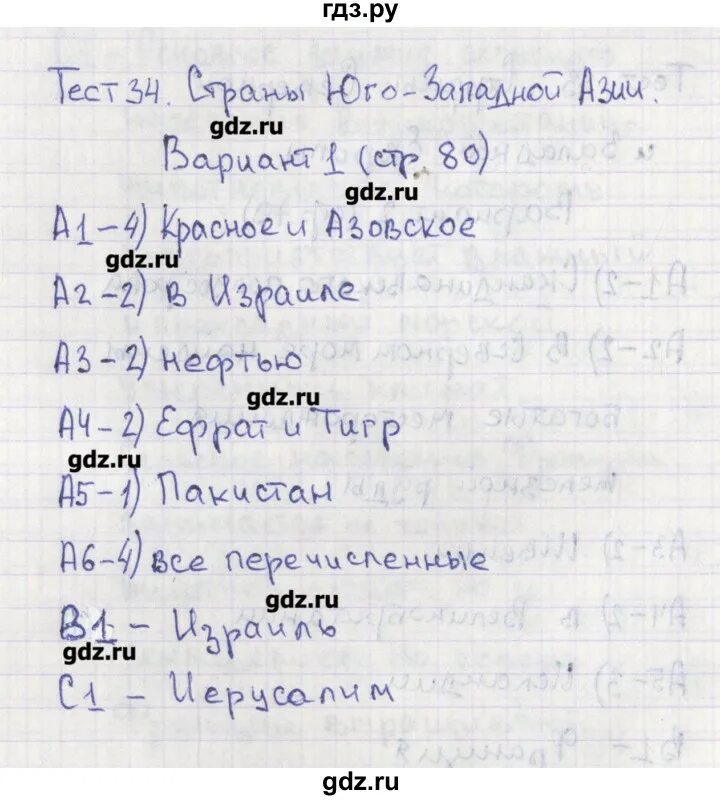 гдз.ру
Тест 34. Страны Юго-Западной Азии.
gdz.ru
Вариант 1 (стр 80)
gdz.ru
А1-4) Красное и Азовское
gdz.ru
А2-2) В Израиле
А3-2) нефтью
gdz.ru
А4-2) Ефрат и Тигр
gdz.ru
А5-1) Пакистан
А6-4) все перечисленные
gdz.ru
В1 - Израиль
gdz.ru
С1 - Иерусалим
gdz.ru